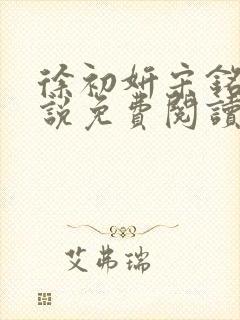 徐初妍宋銘
說免費閱讀
艾弗瑞